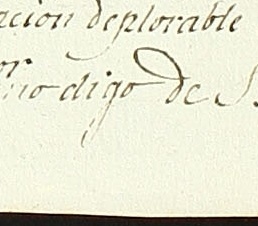 acion deplorable
no digo de S.